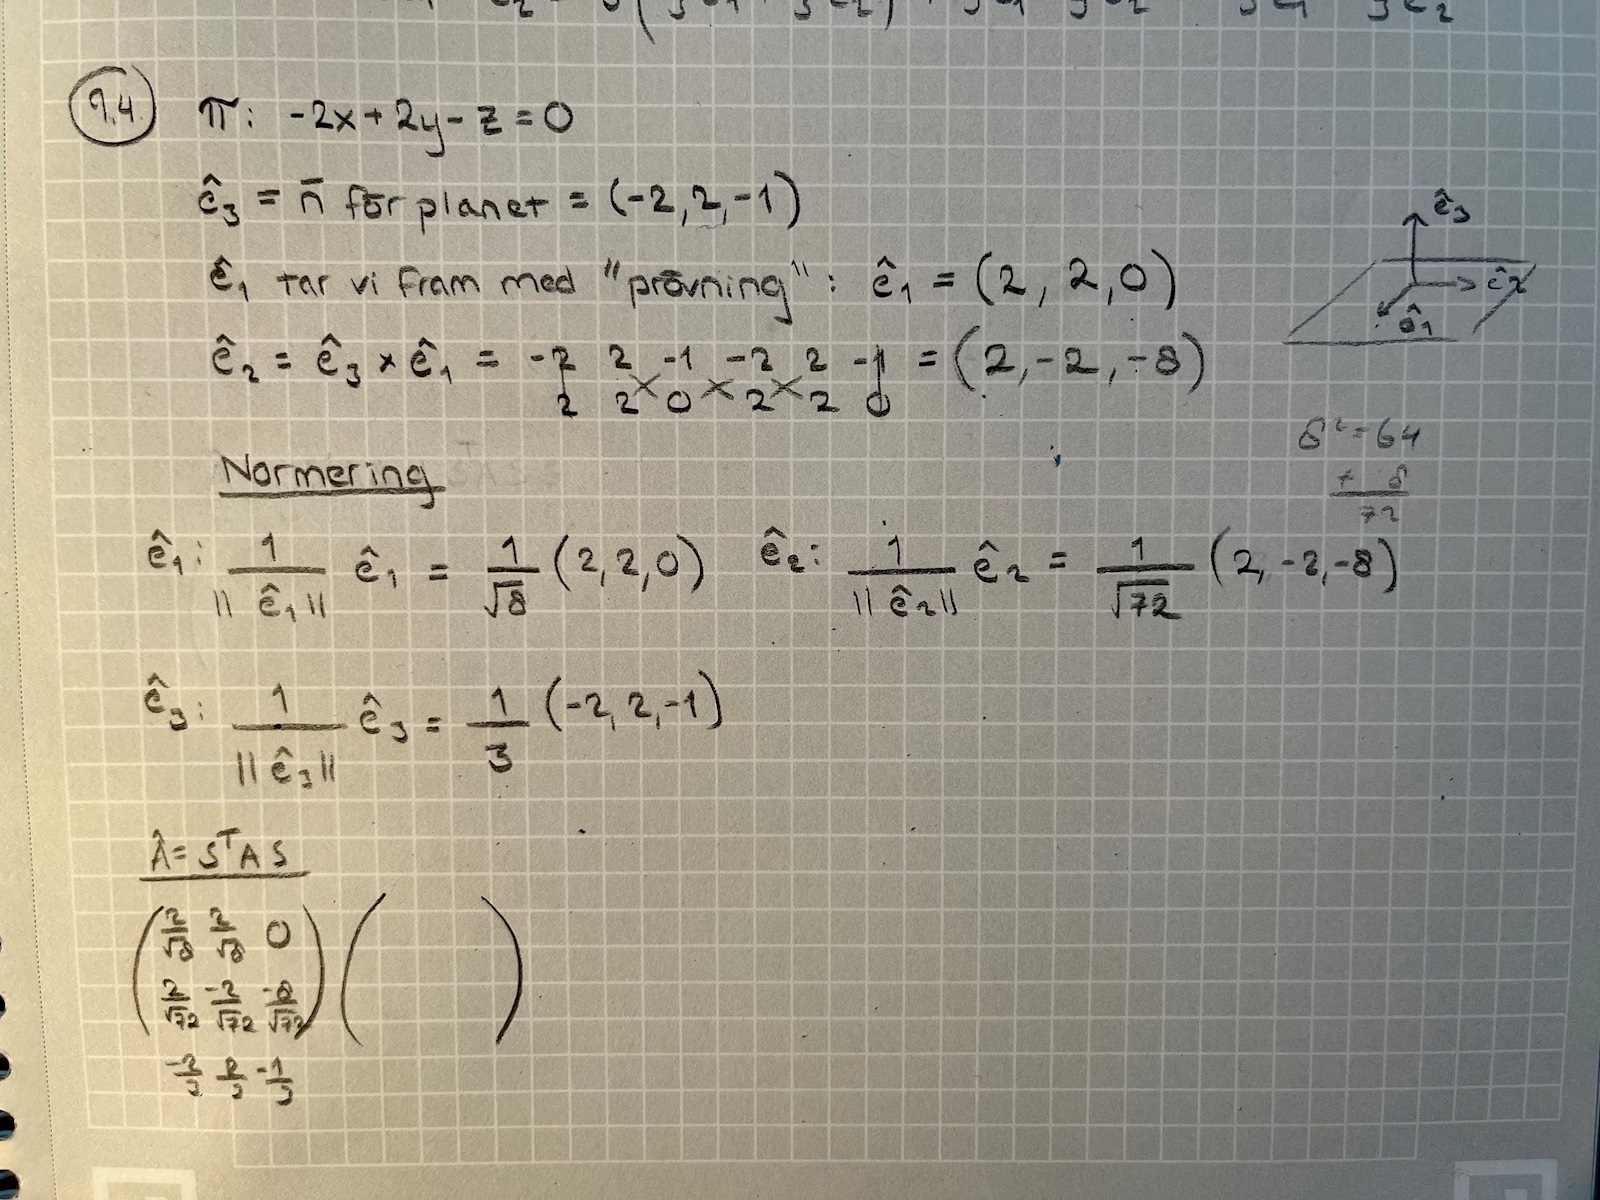 9.4 π: -2x+2y-z=0
ê₃ = n̄ för planet = (-2,2,-1)
ê₃
ê₁ tar vi fram med "prövning": ê₁ = (2, 2,0)
ê₂
ê₁
ê₂ = ê₃ × ê₁ = -2 2 -1 -2 2 -1 = (2,-2,-8)
2 2 0 2 2 0
8² = 64
+ 8
72
Normering
ê₁: 1/||ê₁|| ê₁ = 1/√8 (2,2,0) ê₂: 1/||ê₂|| ê₂ = 1/√72 (2,-2,-8)
ê₃: 1/||ê₃|| ê₃ = 1/3 (-2,2,-1)
Â = SᵀAS
(2/√8 2/√8 0) ( )
2/√72 -2/√72 -8/√72
-2/3 2/3 -1/3